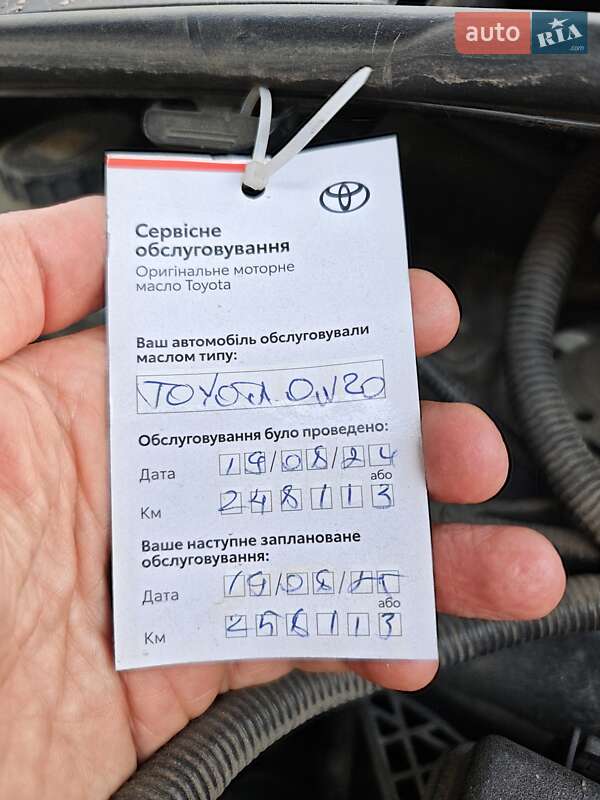 auto RIA.com
Сервісне
обслуговування
Оригінальне моторне
масло Toyota
Ваш автомобіль обслуговували
маслом типу:
TOYOTA 0W20
Обслуговування було проведено:
Дата 19/08/24
або
Км 248113
Ваше наступне заплановане
обслуговування:
Дата 19/08/25
або
Км 258113